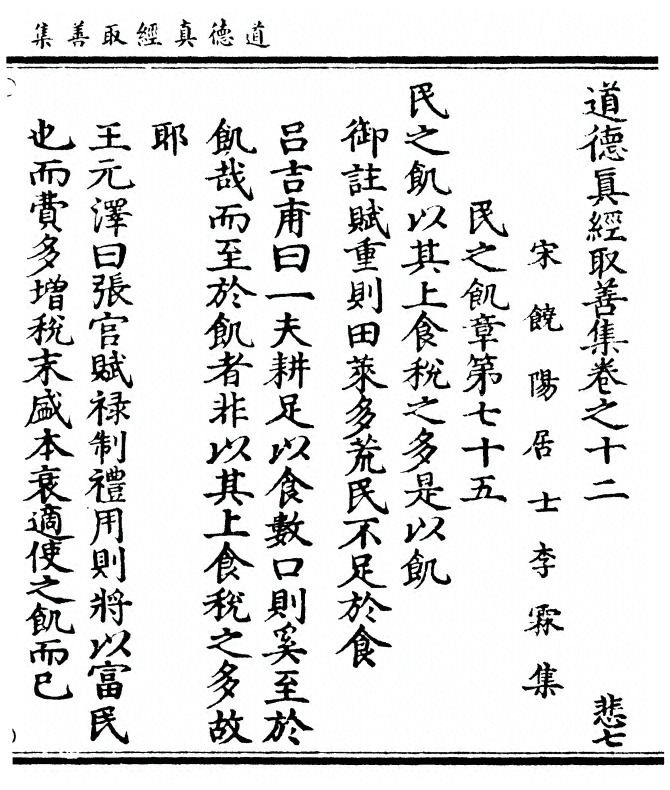 道德真經取善集
道德眞經取善集卷之十二
悲七
宋饒陽居士李霖集
民之飢章第七十五
民之飢以其上食稅之多是以飢
御註賦重則田萊多荒民不足於食
呂吉甫曰一夫耕足以食數口則奚至於
飢哉而至於飢者非以其上食稅之多故
耶
王元澤曰張官賦禄制禮用則將以富民
也而費多增稅末盛本衰適使之飢而已